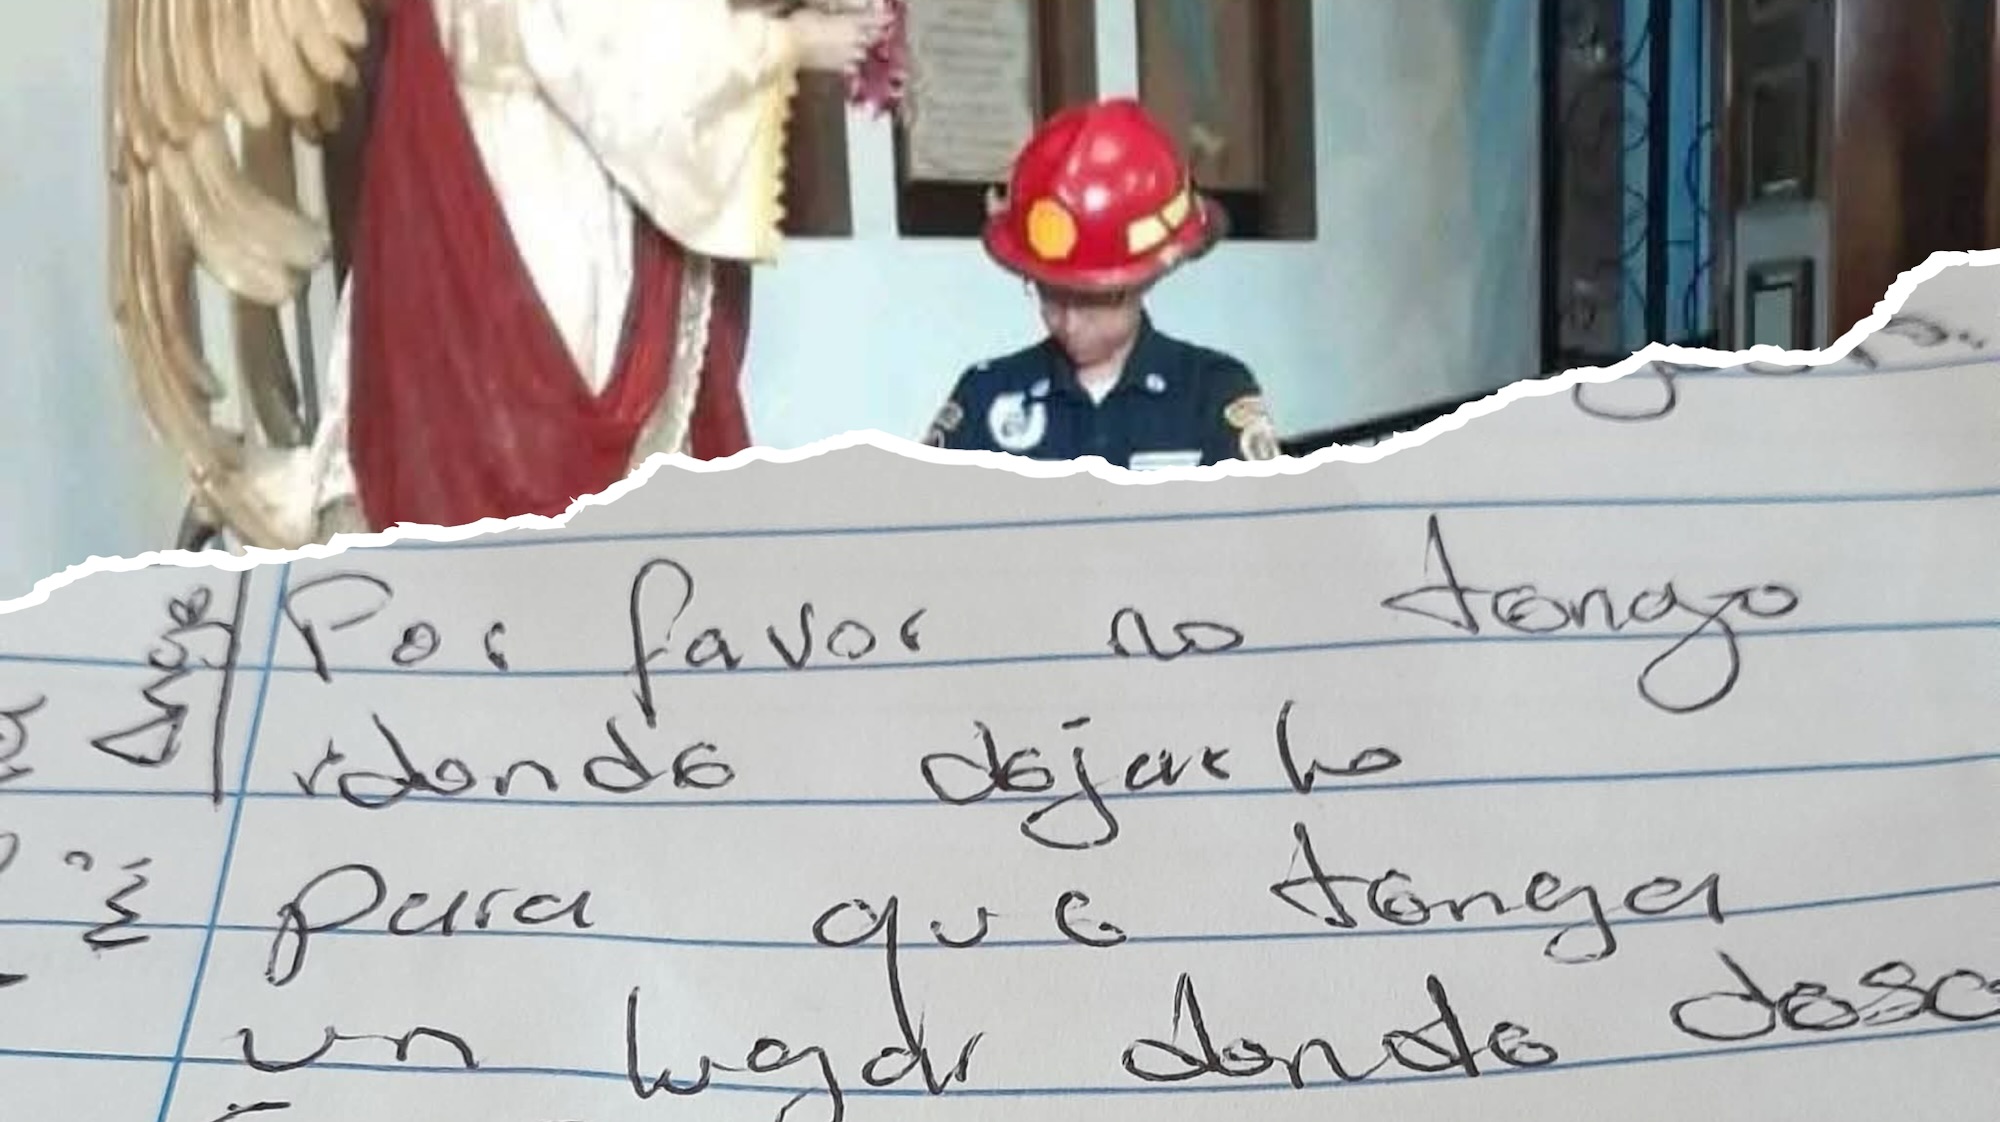 Por favor no tengo
donde dejarlo
para que tenga
un lugar donde desc